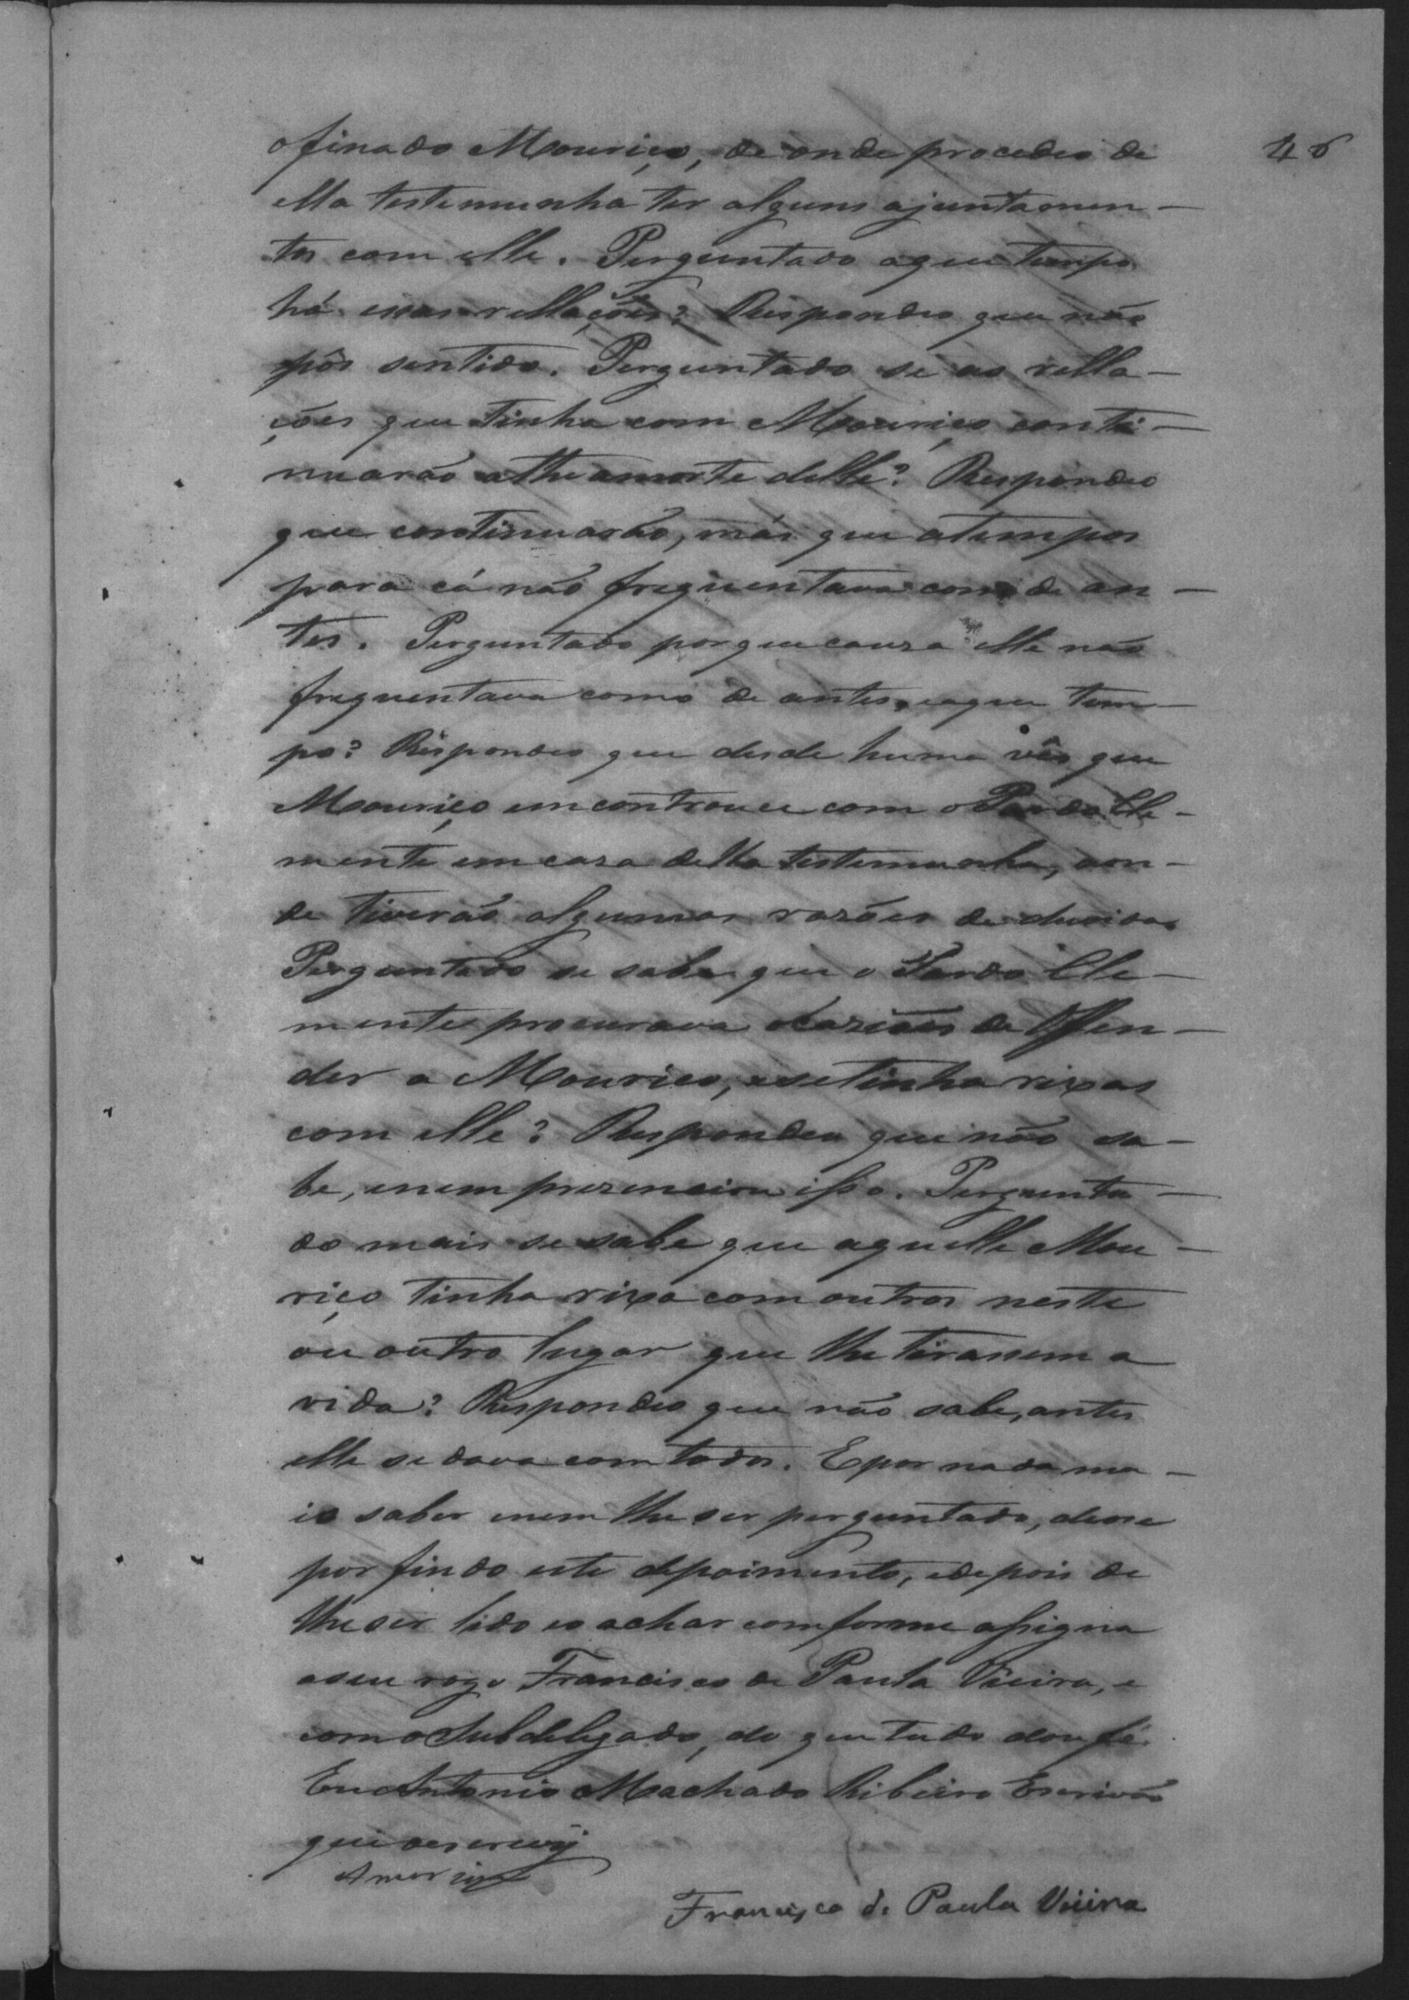 46
o finado Mouriço, de onde procedeo de
ella testemunha ter alguns ajuntamen-
tos com elle. Perguntado aque tempo
há essas rellações? Respondeo que não
pôs sentido. Perguntado se as rella-
ções que tinha com Mouriço conti-
nuarão athe amorte delle? Respondeo
que continuarão, más que atempos
para cá não frequentava como de an-
tes. Perguntado porque cauza elle não
frequentava como de antes, eaque tem-
po? Respondeo que desde huma vês que
Mouriço encontrouce com o Pardo Cle-
mente em caza della testemunha, aon-
de tiverão algumas razões de duvidas
Perguntado se sabe que o Pardo Cle-
mente procurava ocaziões de offen-
der a Mourico, ese tinha rixas
com elle? Respondeu que não sa-
be, enem prezenciou isso. Pergunta-
do mais se sabe que aquelle Mou-
riço tinha rixa com outros neste
ou outro lugar que lhe tirassem a
vida? Respondeo que não sabe, antes
elle se dava com todos. E por nada ma-
is saber enem lhe ser perguntado, deuse
por findo este depoimento, edepois de
lhe ser lido eo achar comforme assigna
aseu rogo Francisco de Paula Vieira, e
como Subdelegado, do que tudo dou fé.
Eu Antonio Machado Ribeiro Escrivão
que oescrevy
Amorim
Francisco de Paula Vieira